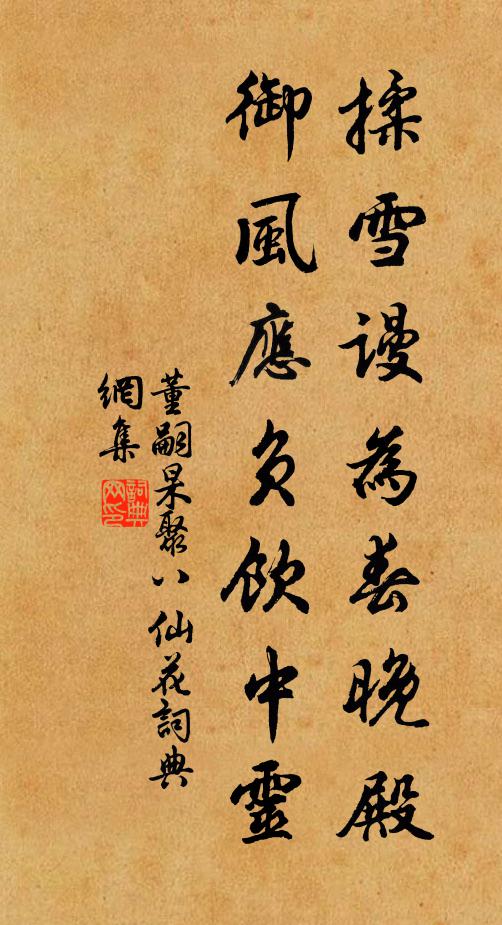 揉雪謾為春晚殿
御風應負飲中靈
董嗣杲聚八仙花詞典
網集
詞典
網印